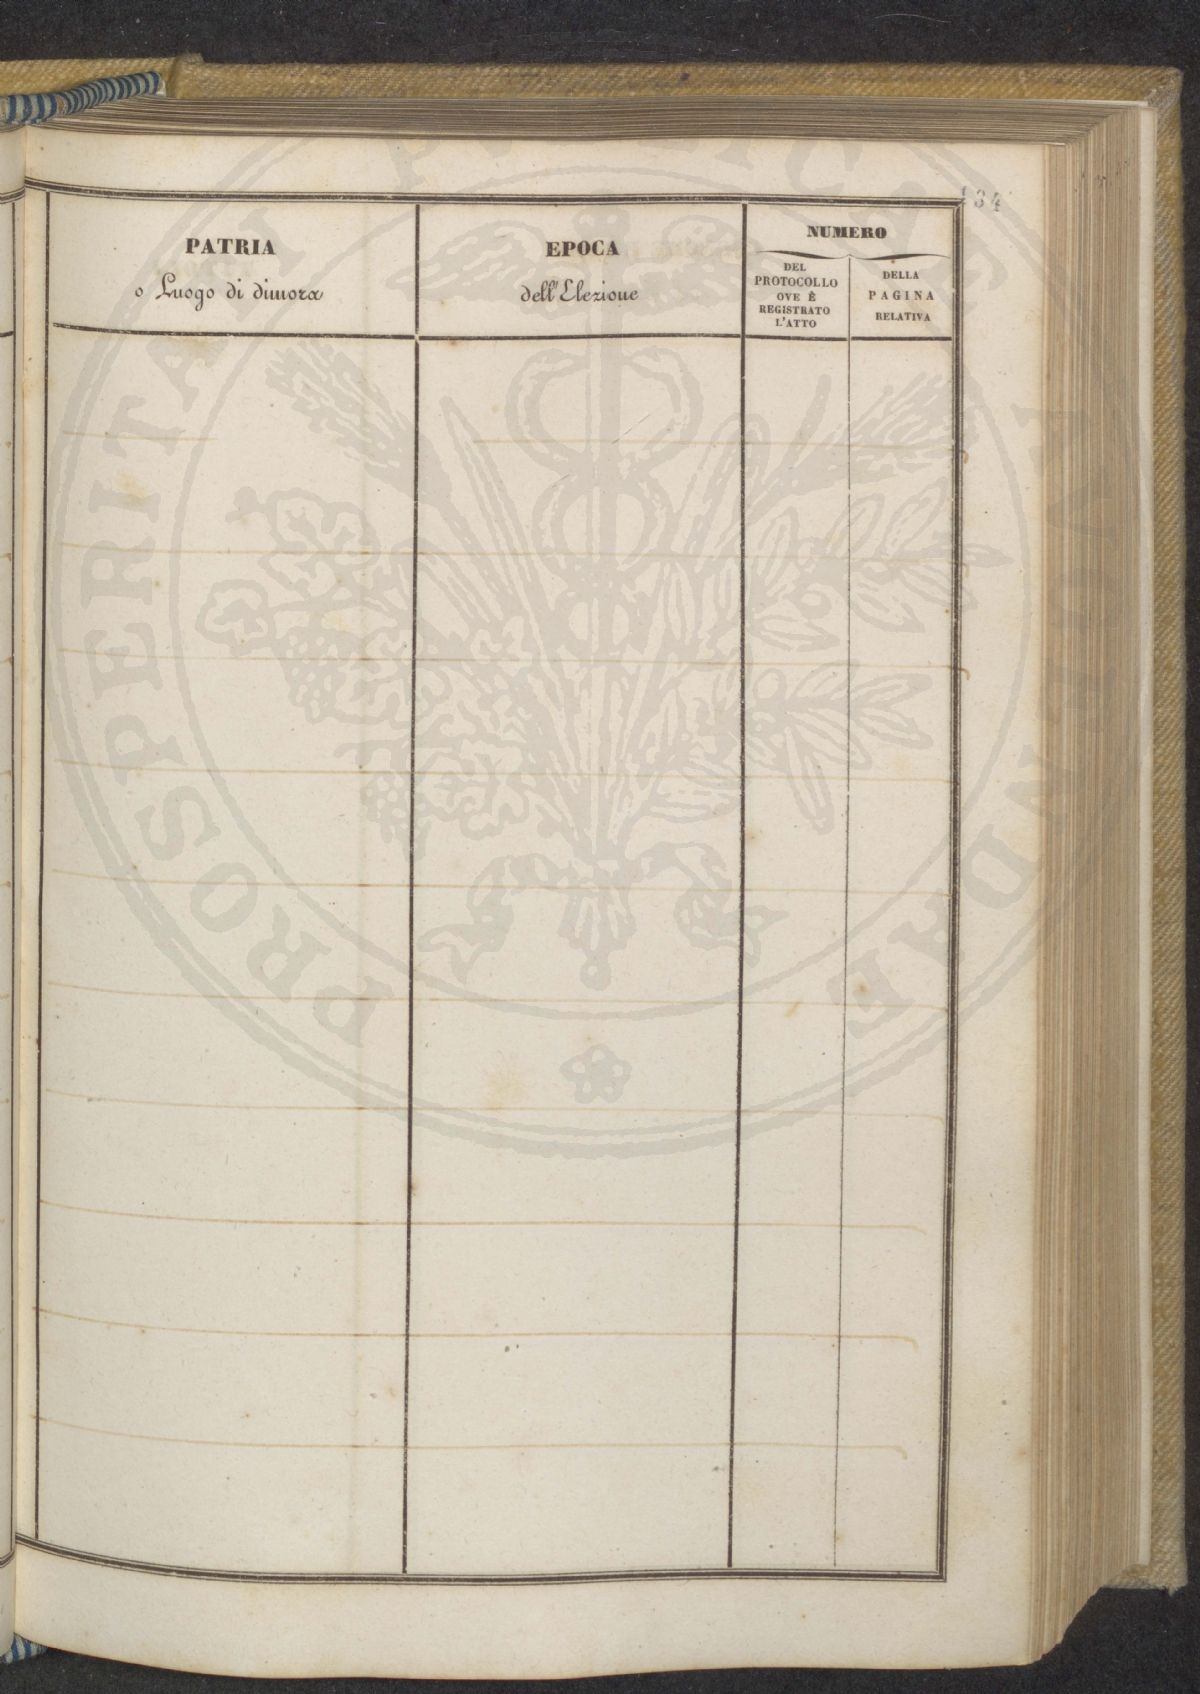 134
PATRIA
o Luogo di dimora
EPOCA
dell'Elezione
NUMERO
DEL
PROTOCOLLO
OVE È
REGISTRATO
L'ATTO
DELLA
PAGINA
RELATIVA
PROSPERITATI PUBLICAE AUGENDAE